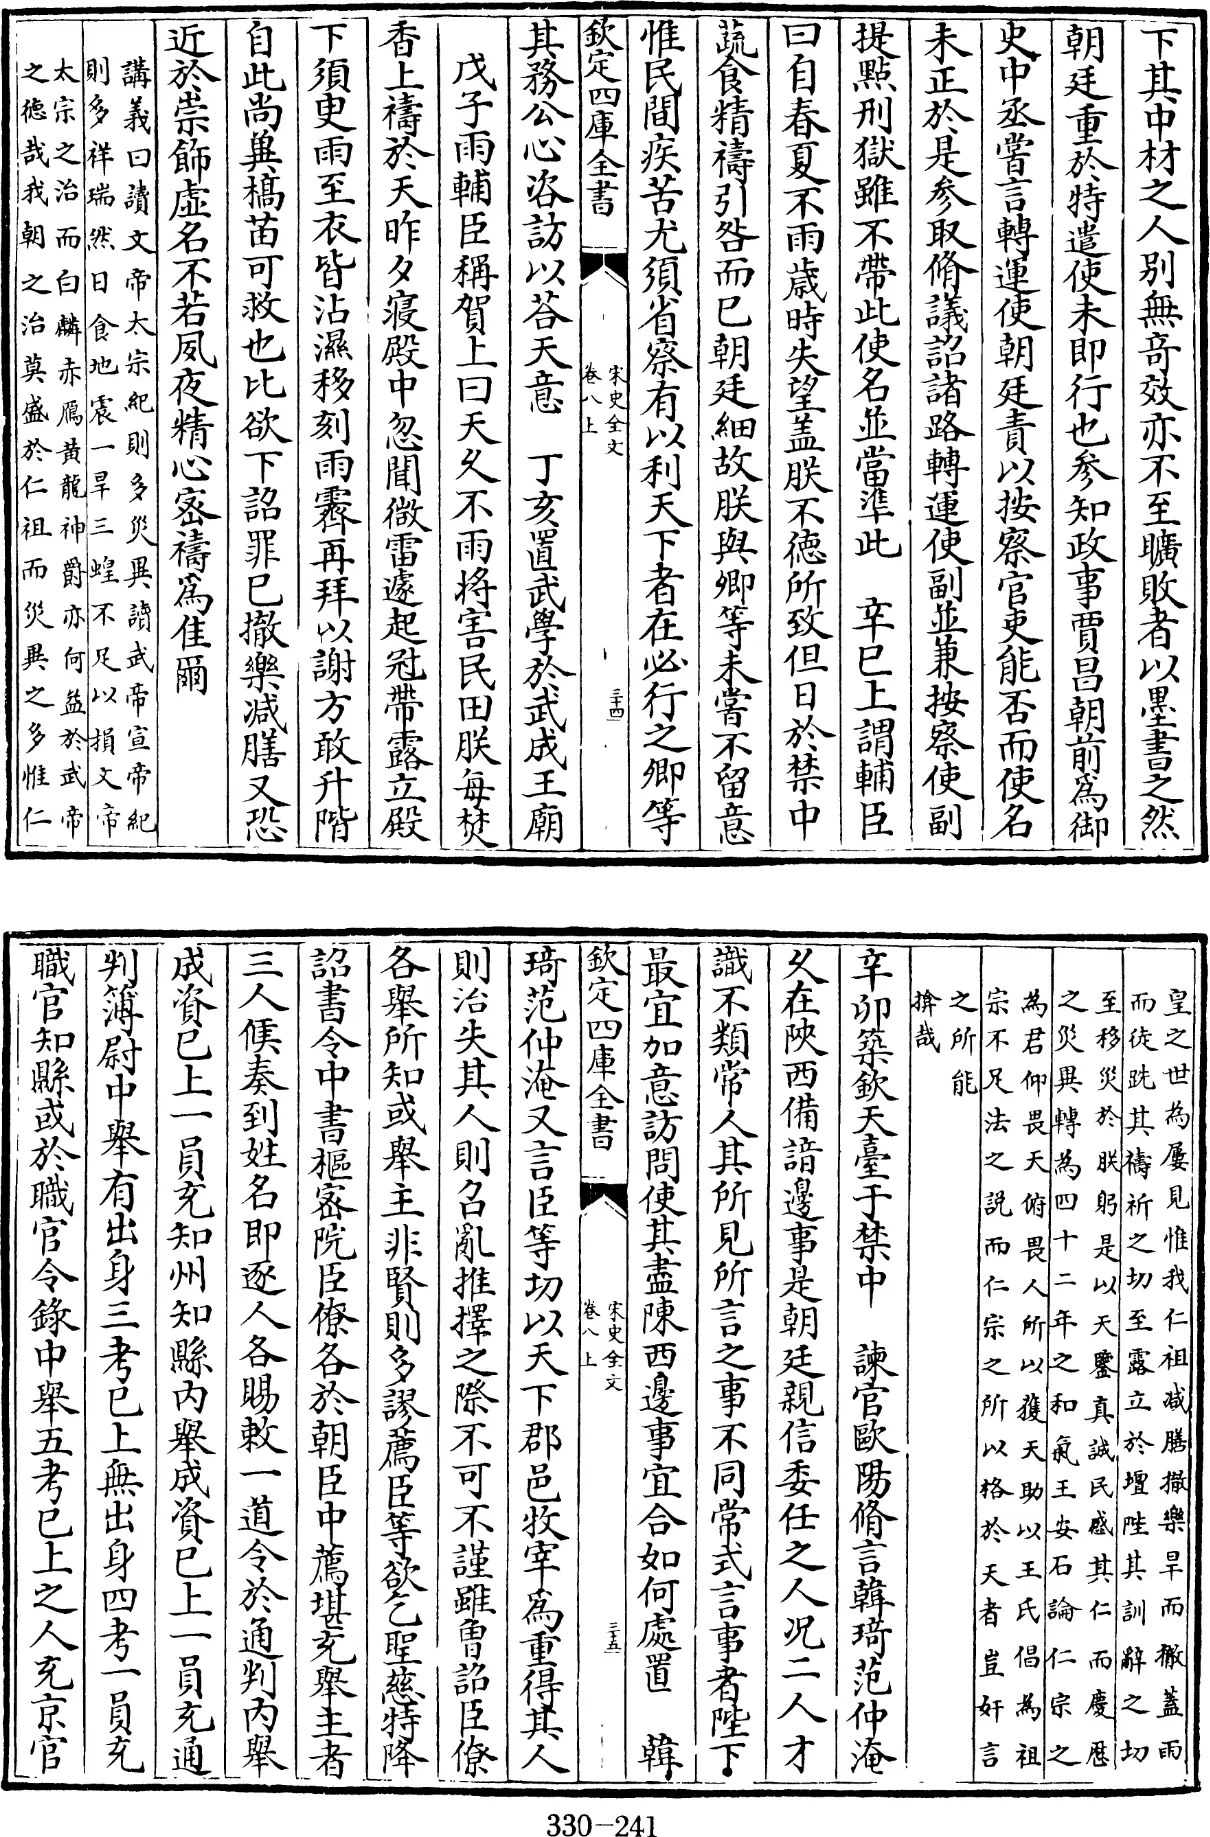 下其中材之人别無竒效亦不至曠敗者以墨書之然
朝廷重於特遣使未即行也參知政事賈昌朝前為御
史中丞嘗言轉運使朝廷責以按察官吏能否而使名
未正於是參取脩議詔諸路轉運使副並兼按察使副
提點刑獄雖不帶此使名並當準此　辛巳上謂輔臣
曰自春夏不雨歲時失望盖朕不徳所致但日於禁中
蔬食精禱引咎而已朝廷細故朕與卿等未嘗不留意
惟民間疾苦尤須省察有以利天下者在必行之卿等
欽定四庫全書
宋史全文
卷八上
三十四
其務公心咨訪以荅天意　丁亥置武學於武成王廟
戊子雨輔臣稱賀上曰天乆不雨将害民田朕毎焚
香上禱於天昨夕寢殿中忽聞微雷遽起冠帶露立殿
下須臾雨至衣皆沾濕移刻雨霽再拜以謝方敢升階
自此尚兾槁苗可救也比欲下詔罪已撤樂减膳又恐
近於崇飾虚名不若夙夜精心宻禱為佳爾
講義曰讀文帝太宗紀則多災異讀武帝宣帝紀
則多祥瑞然日食地震一旱三蝗不足以損文帝
太宗之治而白麟赤鴈黄龍神爵亦何益於武帝
之徳哉我朝之治莫盛於仁祖而災異之多惟仁
皇之世為屢見惟我仁祖减膳撤樂旱而撤盖雨
而徒跣其禱祈之切至露立於壇陛其訓辭之切
至移災於朕躬是以天鑒真誠民感其仁而慶厯
之災異轉為四十二年之和氣王安石論仁宗之
為君仰畏天俯畏人所以獲天助以王氏倡為祖
宗不足法之説而仁宗之所以格於天者豈奸言
之所能
揜哉
辛卯築欽天臺于禁中　諫官歐陽脩言韓琦范仲淹
乆在陜西備諳邊事是朝廷親信委任之人况二人才
識不類常人其所見所言之事不同常式言事者陛下
最宜加意訪問使其盡陳西邊事宜合如何處置　韓
欽定四庫全書
宋史全文
卷八上
三十五
琦范仲淹又言臣等切以天下郡邑牧宰為重得其人
則治失其人則召亂推擇之際不可不謹雖曽詔臣僚
各舉所知或舉主非賢則多謬薦臣等欲乞聖慈特降
詔書令中書樞宻院臣僚各於朝臣中薦堪充舉主者
三人俟奏到姓名即逐人各賜敕一道令於通判内舉
成資已上一員充知州知縣内舉成資已上一員充通
判簿尉中舉有出身三考已上無出身四考一員充
職官知縣或於職官令錄中舉五考已上之人充京官
330-241